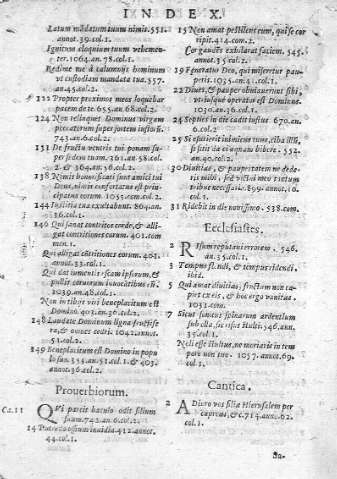 INDEX.
Latum mādatum tuum nimis. 551.
annot. 39. col. 1.
Ignitum eloquium tuum vehemen-
ter. 1064. an. 78. col. 1.
Redime me à calumnijs hominum
vt custodiam mandata tua. 557.
an. 45. col. 2.
122 Propter proximos meos loquebar
pacem de te. 665. an. 68. col. 2.
124 Non relinquet Dominus virgam
peccatorum super sortem iustorū.
743. an. 6. col. 2.
131 De fructu ventris tui ponam su-
per sedem tuam. 361. an. 58. col.
2. & 364. an. 56. col. 2.
138 Nimis honorificati sunt amici tui
Deus, nimis confortatus est prin-
cipatus eorum. 1055. cem. col. 2.
144 Iustitia tua exultabunt. 864. an.
86. col. 1.
146 Qui sanat contritos corde, & alli-
gat contritiones eorum. 401. com
men. 1.
Qui alligat contritiones eorum. 401.
annot. 33. col. 1.
Qui dat iumentis escam ipsorum, &
pullis coruorum inuocātibus eū.
1039. an. 48. col. 1.
Non in tibijs viri beneplacitum est
Domino. 403. an. 36. col. 2.
148 Laudate Dominum ligna fructife-
ra, & omnes cedri. 1042. annot.
51. col. 2.
149 Beneplacitum est Domino in popu
lo suo. 355. an. 51. col. 1. & 403.
annot. 36. col. 2.
Prouerbiorum.
Ca. 11 QVi parcit baculo odit filium
suum. 742. an. 6. col. 2.
14 Putredo ossium inuidia. 412. annor.
44. col. 1.
15 Non amat pestilens eum, qui se cor
ripit. 414. com. 2.
Cor gaudēs exhilarat faciem. 545.
annot. 35. col. 2.
19 Fœneratur Deo, qui miseretur pau
peris. 1035. an. 41. col. 1.
22 Diues, & pauper obuiauerunt sibi,
vtriusque operator est Dominus.
1030. an. 36. col. 1.
24 Septies in die cadit iustus 670. an.
6. col. 2
25 Si esurierit inimicus tuus, ciba illū,
si sitit da ei aquam bibere. 552.
an. 40. col. 2.
30 Diuitias, & paupertatem ne dede-
ris mihi, sed victui meo tantum
tribue necessaria. 899. annot. 16.
col. 1.
31 Ridebit in die nouissimo. 538. com.
Ecclesiastes.
2 RIsum reputaui errorem. 546.
an. 35. col. 1.
3 Tempus flendi, & tempus ridendi,
ibid.
5 Qui amat diuitias, fructum non ca-
piet ex eis, & hoc ergo vanitas.
1031. com.
7 Sicut sonitus spinarum ardentium
sub olla, sic risus stulti. 546. ann.
35. col. 1.
Noli esse stultus, ne moriaris in tem
pore non tuo. 1057. annot. 69.
col. 1.
Cantica.
2 ADiuro vos filiæ Hierusalem per
capreas, &c. 714. ann. 62.
col. 1.